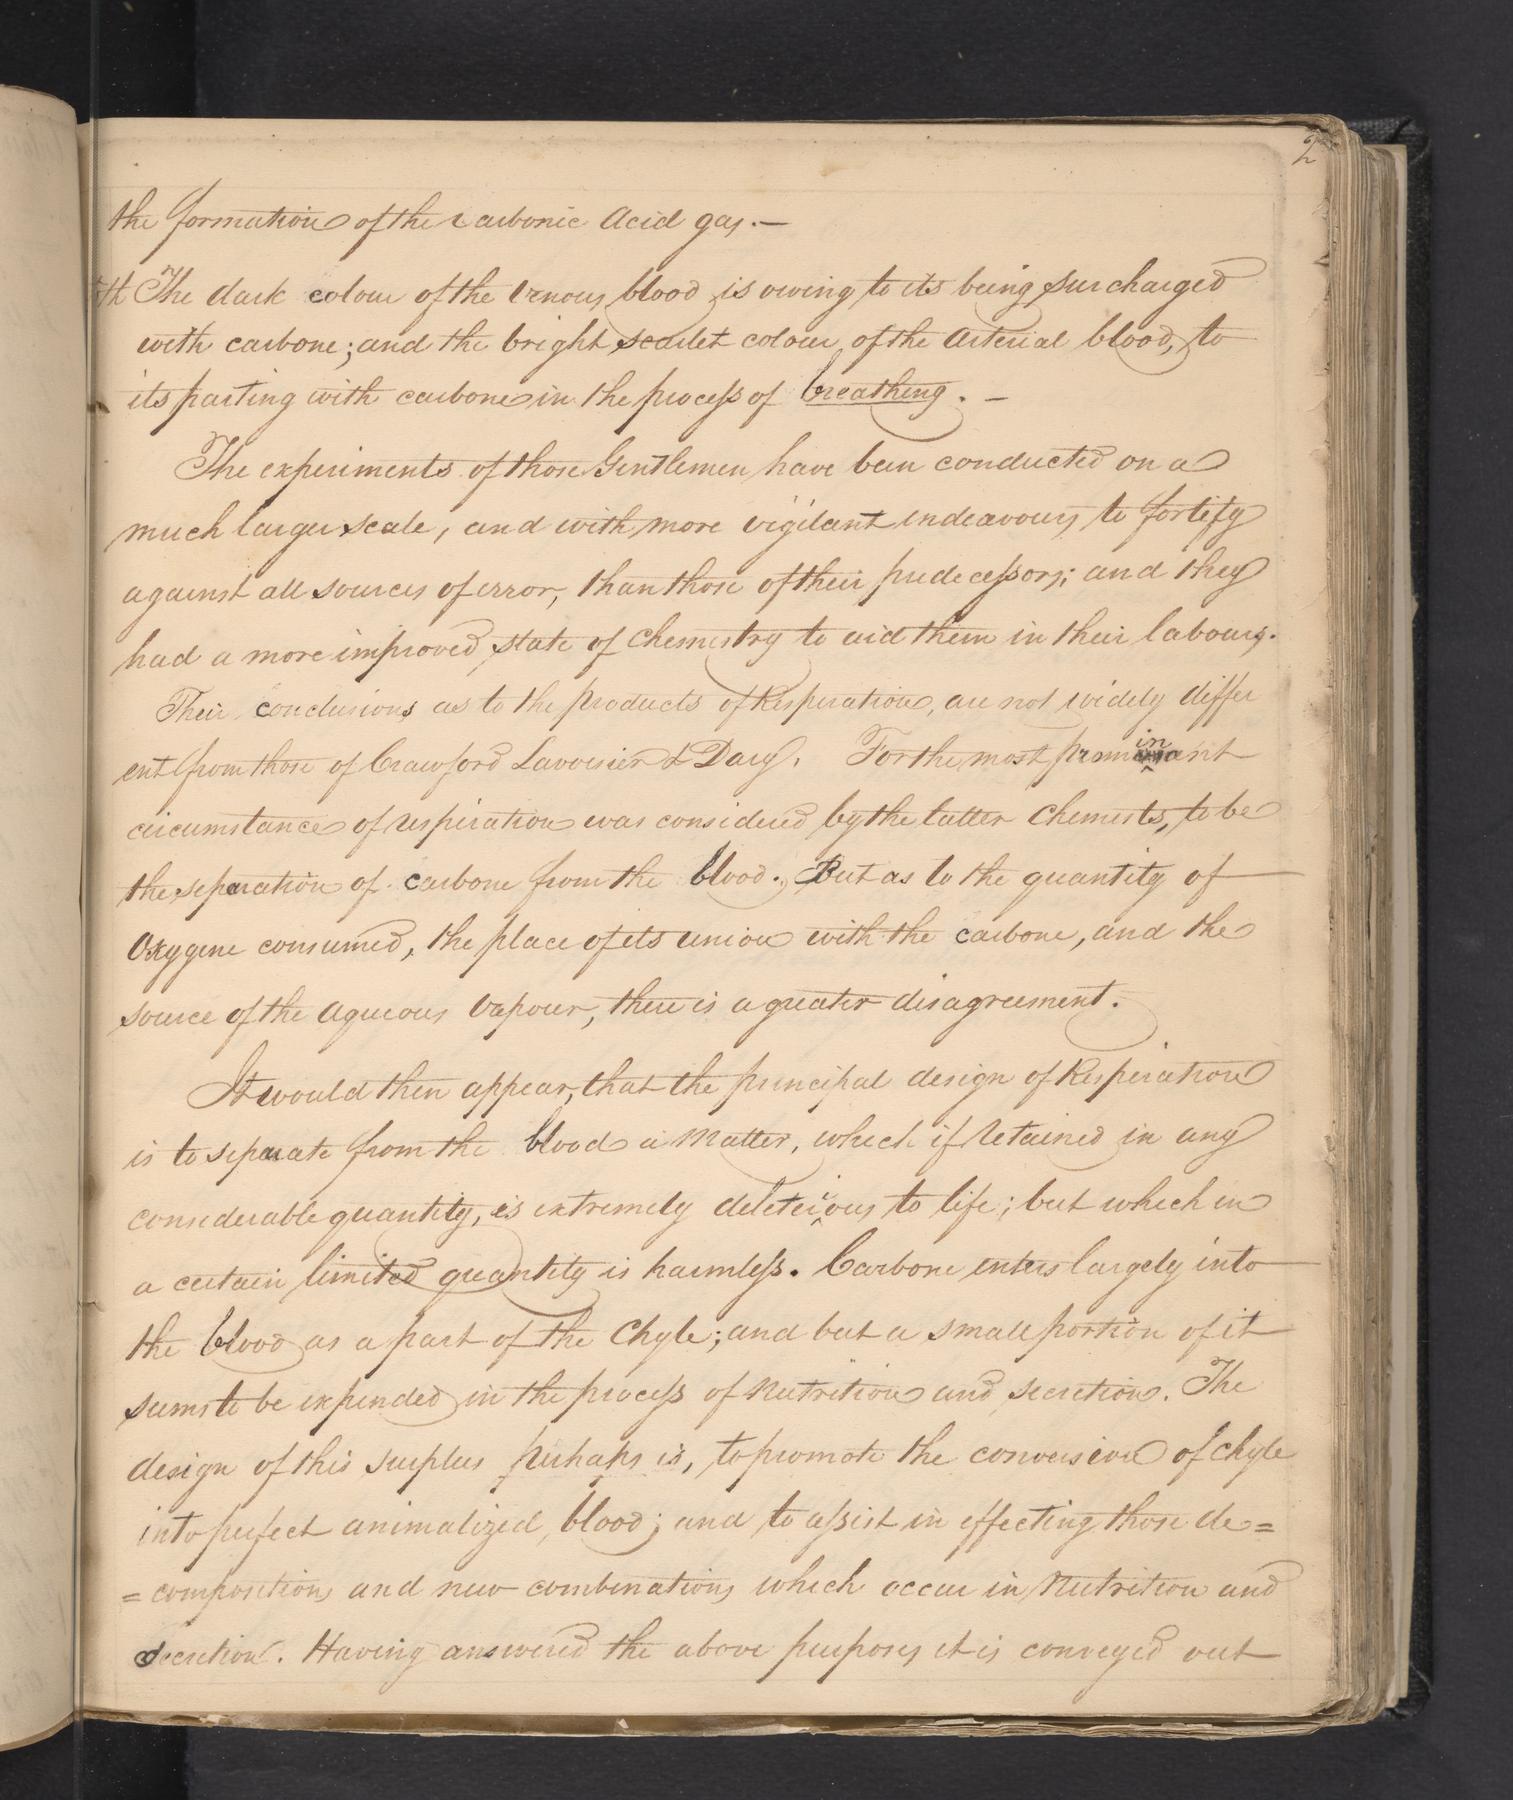 2
the formation of the carbonic Acid gas.—
th The dark colour of the Venous blood is owing to its being surcharged
with carbone; and the bright scarlet colour of the arterial blood, to
its parting with carbone in the process of breathing. —
The experiments of those Gentlemen have been conducted on a
much larger scale, and with more vigilant endeavours to fortify
against all sources of error, than those of their predecessors; and they
had a more improved state of Chemistry to aid them in their labours.
Their conclusions as to the products of Respiration, are not widely differ
ent from those of Crawford Lavoisier & Davy. For the most prominant
circumstance of respiration was considered by the latter Chemists, to be
the separation of carbone from the blood. But as to the quantity of
Oxygene consumed, the place of its union with the carbone, and the
source of the aqueous vapour, there is a greater disagreement.
It would then appear, that the principal design of Respiration
is to separate from the blood a matter, which if retained in any
considerable quantity, is extremely deleterious to life; but which in
a certain limited quantity is harmless. Carbone enters largely into
the blood as a part of the Chyle; and but a small portion of it
seems to be expended in the process of Nutrition and secretion. The
design of this surplus perhaps is, to promote the conversion of chyle
into perfect animalized blood; and to assist in effecting those de=
=compositions and new combinations which occur in Nutrition and
secretion. Having answered the above purposes it is conveyed out